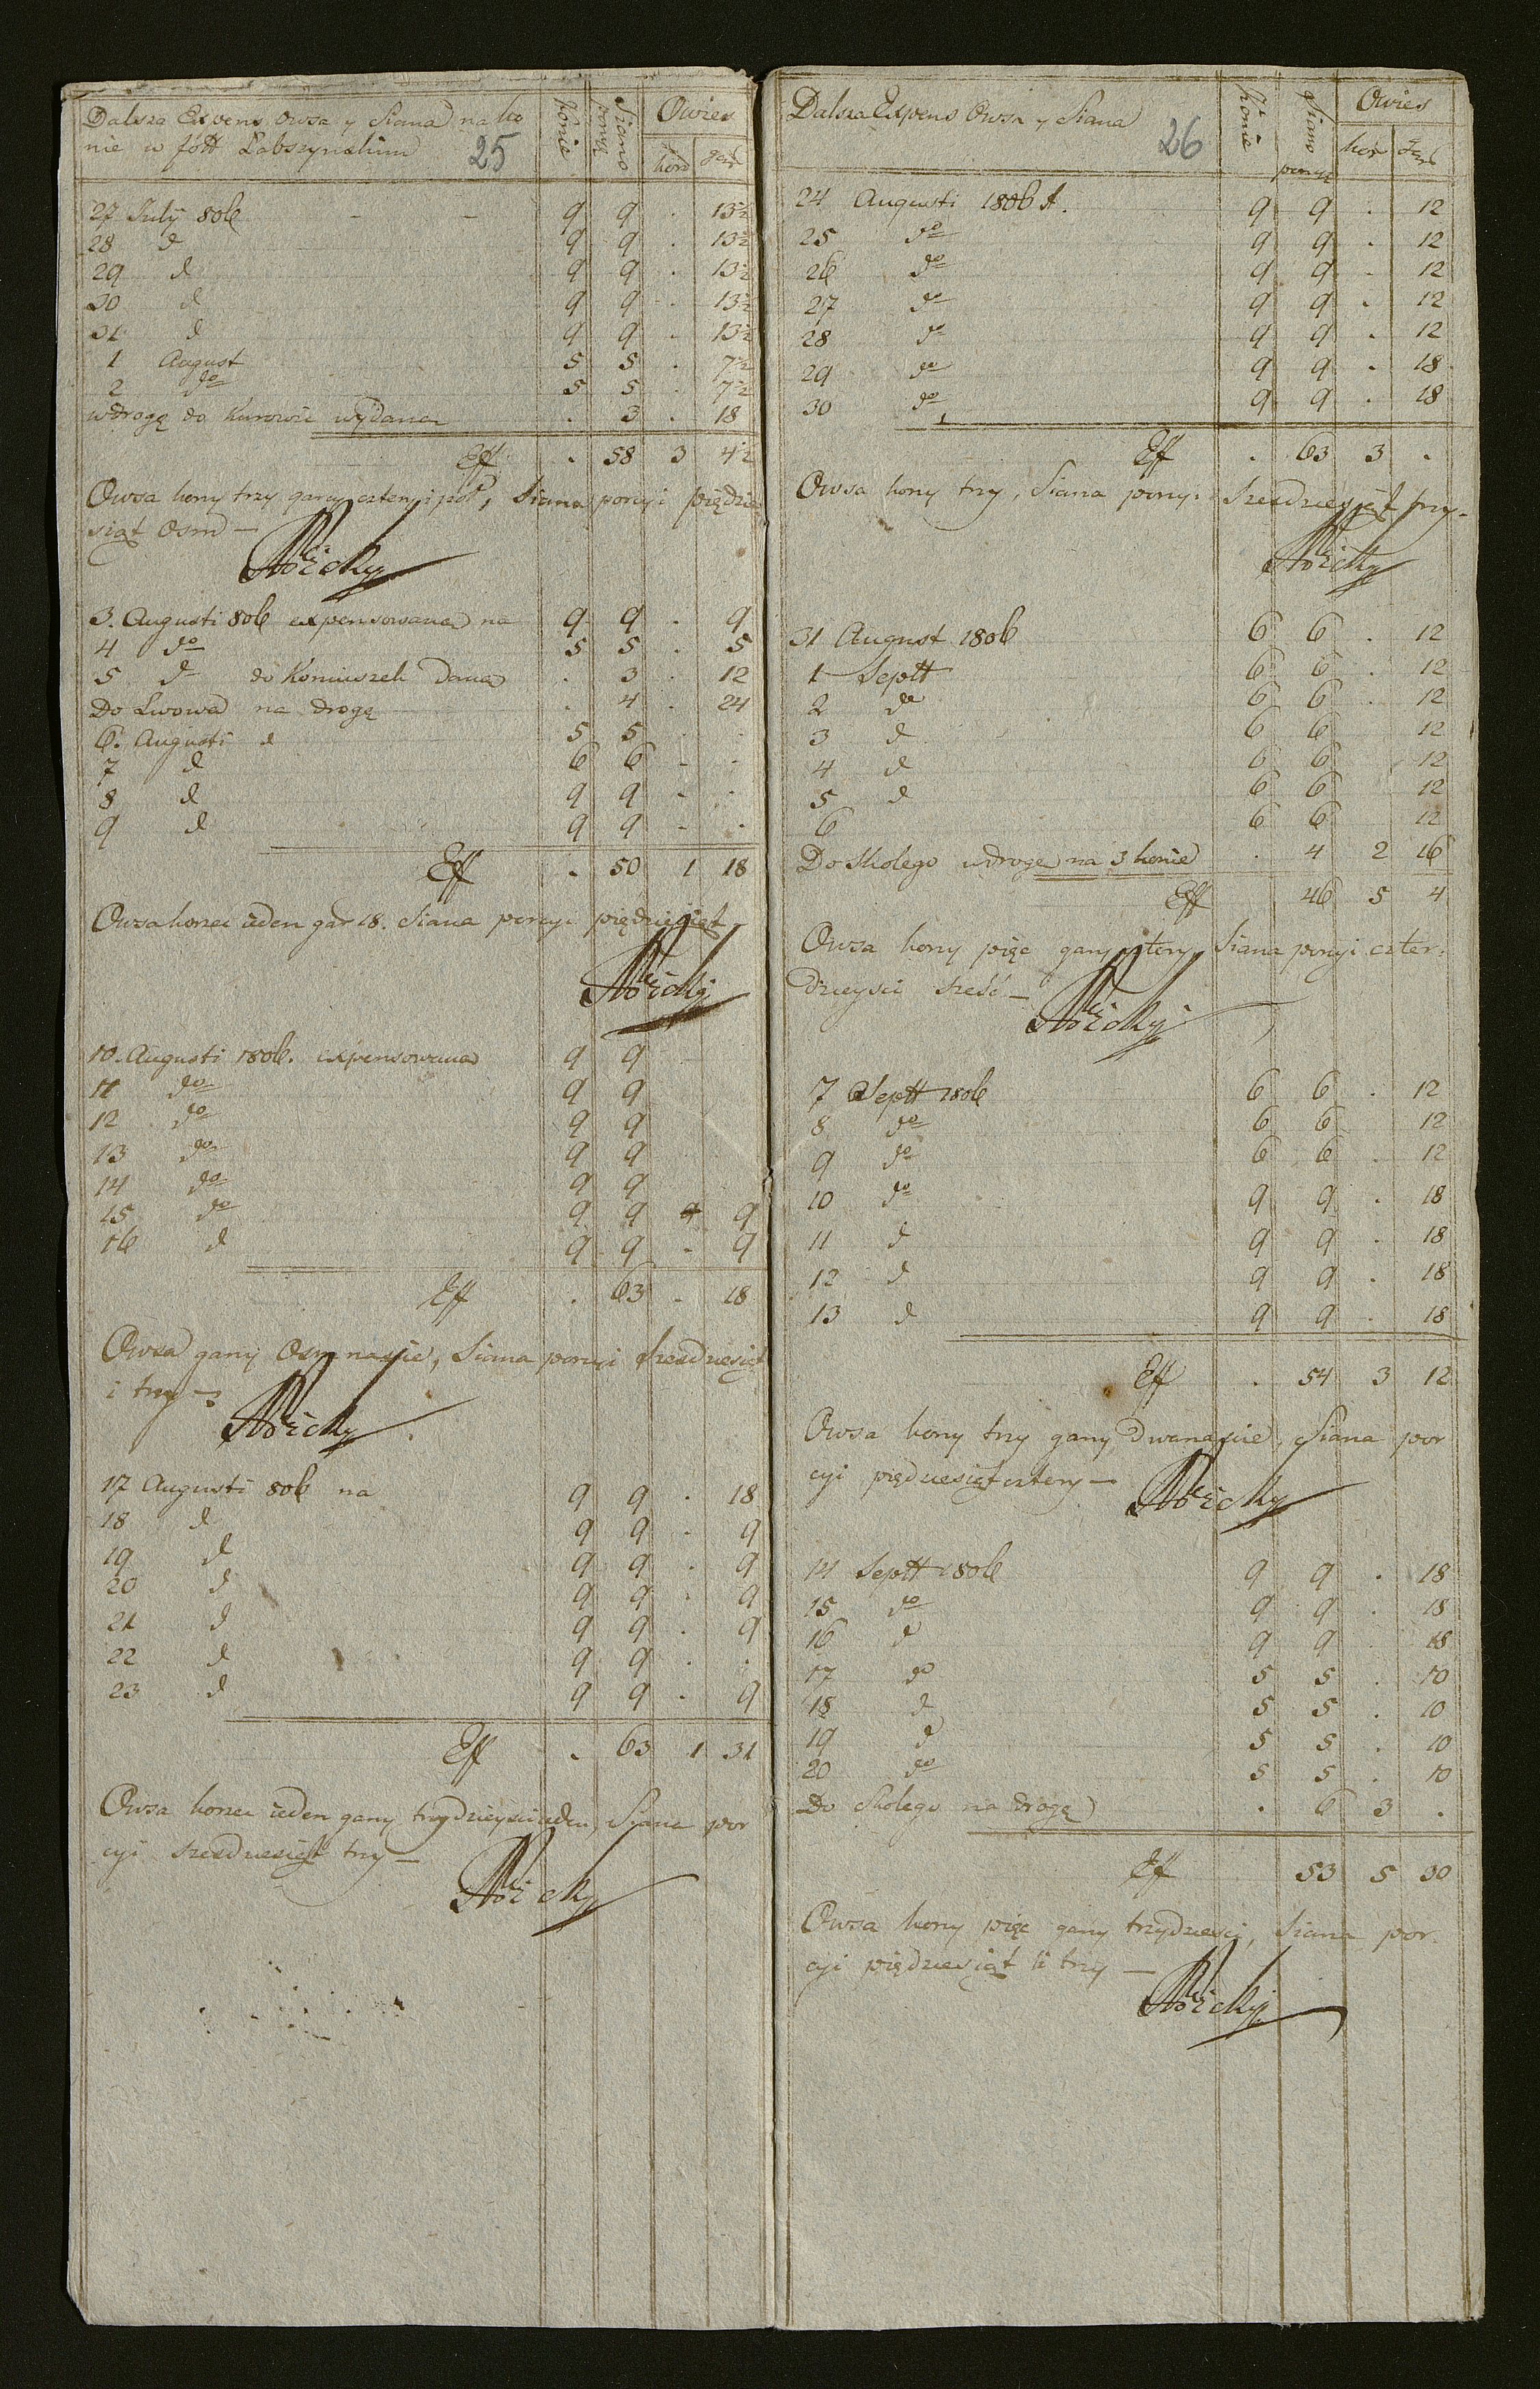 Dalsza Expens Owsa y Siana na ko
nie w fółt Labszynskim 25
Konie
Siano porcye
Owies
kor gar
27 July 806 - - 9 9 . 13½
28 d 9 9 . 13½
29 d 9 9 . 13½
30 d 9 9 . 13½
31 d 9 9 . 13½
1 August 5 5 . 7½
2 do 5 5 . 7½
w drogę do Kurowic wydano . 3 . 18
Eff . 58 3 4½
Owsa korcy trzy garcy cztery i poł, Siana porcyi pięćdzie
siąt Osm —
3. Augusti 806 expensowano na 9 9 . 9
4 do 5 5 . 5
5 d do Koniuszek Dano . 3 . 12
Do Lwowa na drogę . 4 . 24
6. Augusti d 5 5 . .
7 d 6 6 - .
8 d 9 9 - .
9 d 9 9 - .
Eff . 50 1 18
Owsa korzec ieden gar 18. Siana porcyi pięćdziesiąt
10. Augusti 1806. expensowano 9 9
11 do 9 9
12 do 9 9
13 do 9 9
14 do 9 9
15 do 9 9 9
16 d 9 9 - 9
Eff . 63 - 18
Owsa garcy Osmnaście, Siana porcyi szesdziesiąt
i trzy —
17 Augusti 806 na 9 9 . 18
18 d 9 9 - 9
19 d 9 9 . 9
20 d 9 9 . 9
21 d 9 9 . 9
22 d 9 9 . .
23 d 9 9 . 9
Eff . 63 1 31
Owsa korzec ieden garcy trzydzieysci ieden, Siana por
cyi szesdziesiąt trzy —
Dalsza Expens Owsa y Siana 26
Konie
Siano porcye
Owies
kor gar
24 Augusti 1806 A. 9 9 . 12
25 do 9 9 . 12
26 do 9 9 - 12
27 do 9 9 . 12
28 do 9 9 . 12
29 do 9 9 . 18
30 do 9 9 . 18
Eff . 63 3 .
Owsa korcy trzy, Siana porcyi szesdziesiąt trzy —
31 August 1806 6 6 . 12
1 Septt 6 6 . 12
2 do 6 6 . 12
3 d 6 6 12
4 d 6 6 12
5 d 6 6 12
6 6 6 12
Do Skolego w drogę na 3 konie . 4 2 16
Eff 46 5 4
Owsa korcy pięc garcy cztery Siana porcyi czter:
dzieysci sześć —
7 Septt 1806 6 6 . 12
8 do 6 6 12
9 do 6 6 . 12
10 do 9 9 . 18
11 d 9 9 . 18
12 d 9 9 . 18
13 d 9 9 . 18
Eff . 54 3 12
Owsa korcy trzy garcy Dwanaście, Siana por
cyi pięćdziesiąt cztery —
14 Septt 1806 9 9 . 18
15 do 9 9 . 18
16 d 9 9 18
17 do 5 5 . 10
18 d 5 5 . 10
19 d 5 5 . 10
20 do 5 5 . 10
Do Skolego na drogę . 6 3 .
Eff 53 5 30
Owsa korcy pięc garcy trzydzieści, Siana por
cyi pięćdziesiąt i trzy —